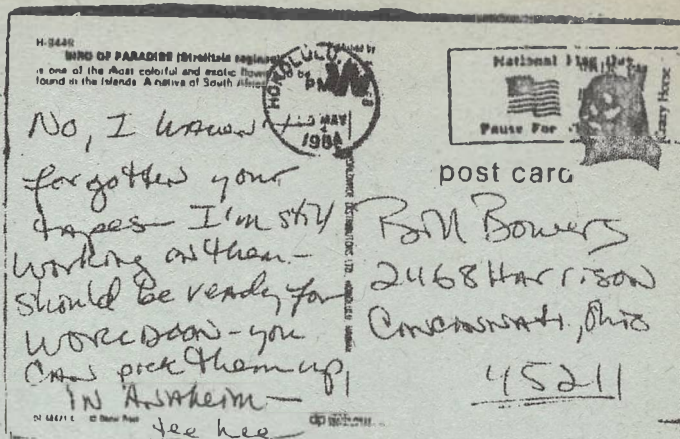 H-344R
BIRD OF PARADISE (Strelitzia reginae)
is one of the most colorful and exotic flowers
found in the Islands. A native of South Africa
HONOLULU,
PM
MAY
1984
National Flag Day
Pause For
Crazy Horse
post card
No, I haven't
forgotten your
tapes — I'm still
working on them —
should be ready for
WORLDCON — you
CAN pick them up,
IN ANAheim —
tee hee
Bill Bowers
2468 HARRISON
CINCINNATI, Ohio
45211
dp